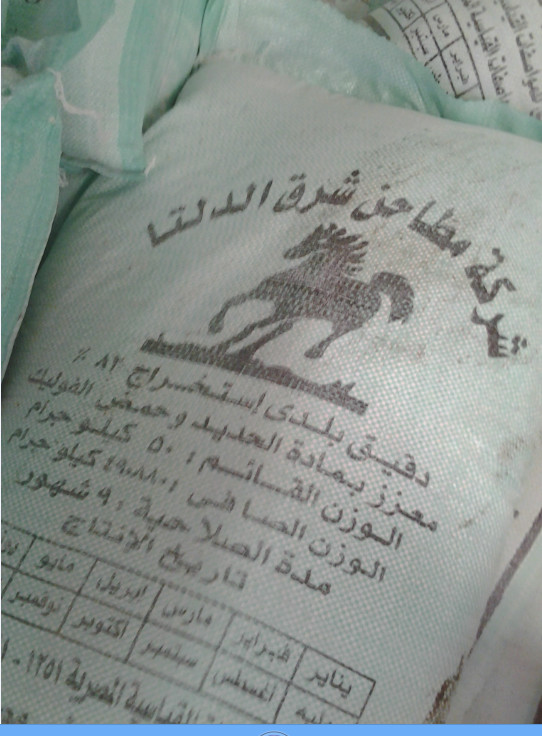 شركة مطاحن شرق الدلتا
دقيق بلدى إستخراج ٨٢ ٪
معزز بمادة الحديد وحمض الفوليك
الوزن القائم : ٥٠ كيلو جرام
الوزن الصافى : ٤٩,٨٨٠ كيلو جرام
مدة الصلاحية : ٩ شهور
تاريخ الإنتاج
يناير فبراير مارس ابريل مايو
أغسطس سبتمبر اكتوبر نوفمبر
القياسية المصرية ١٢٥١ - ١